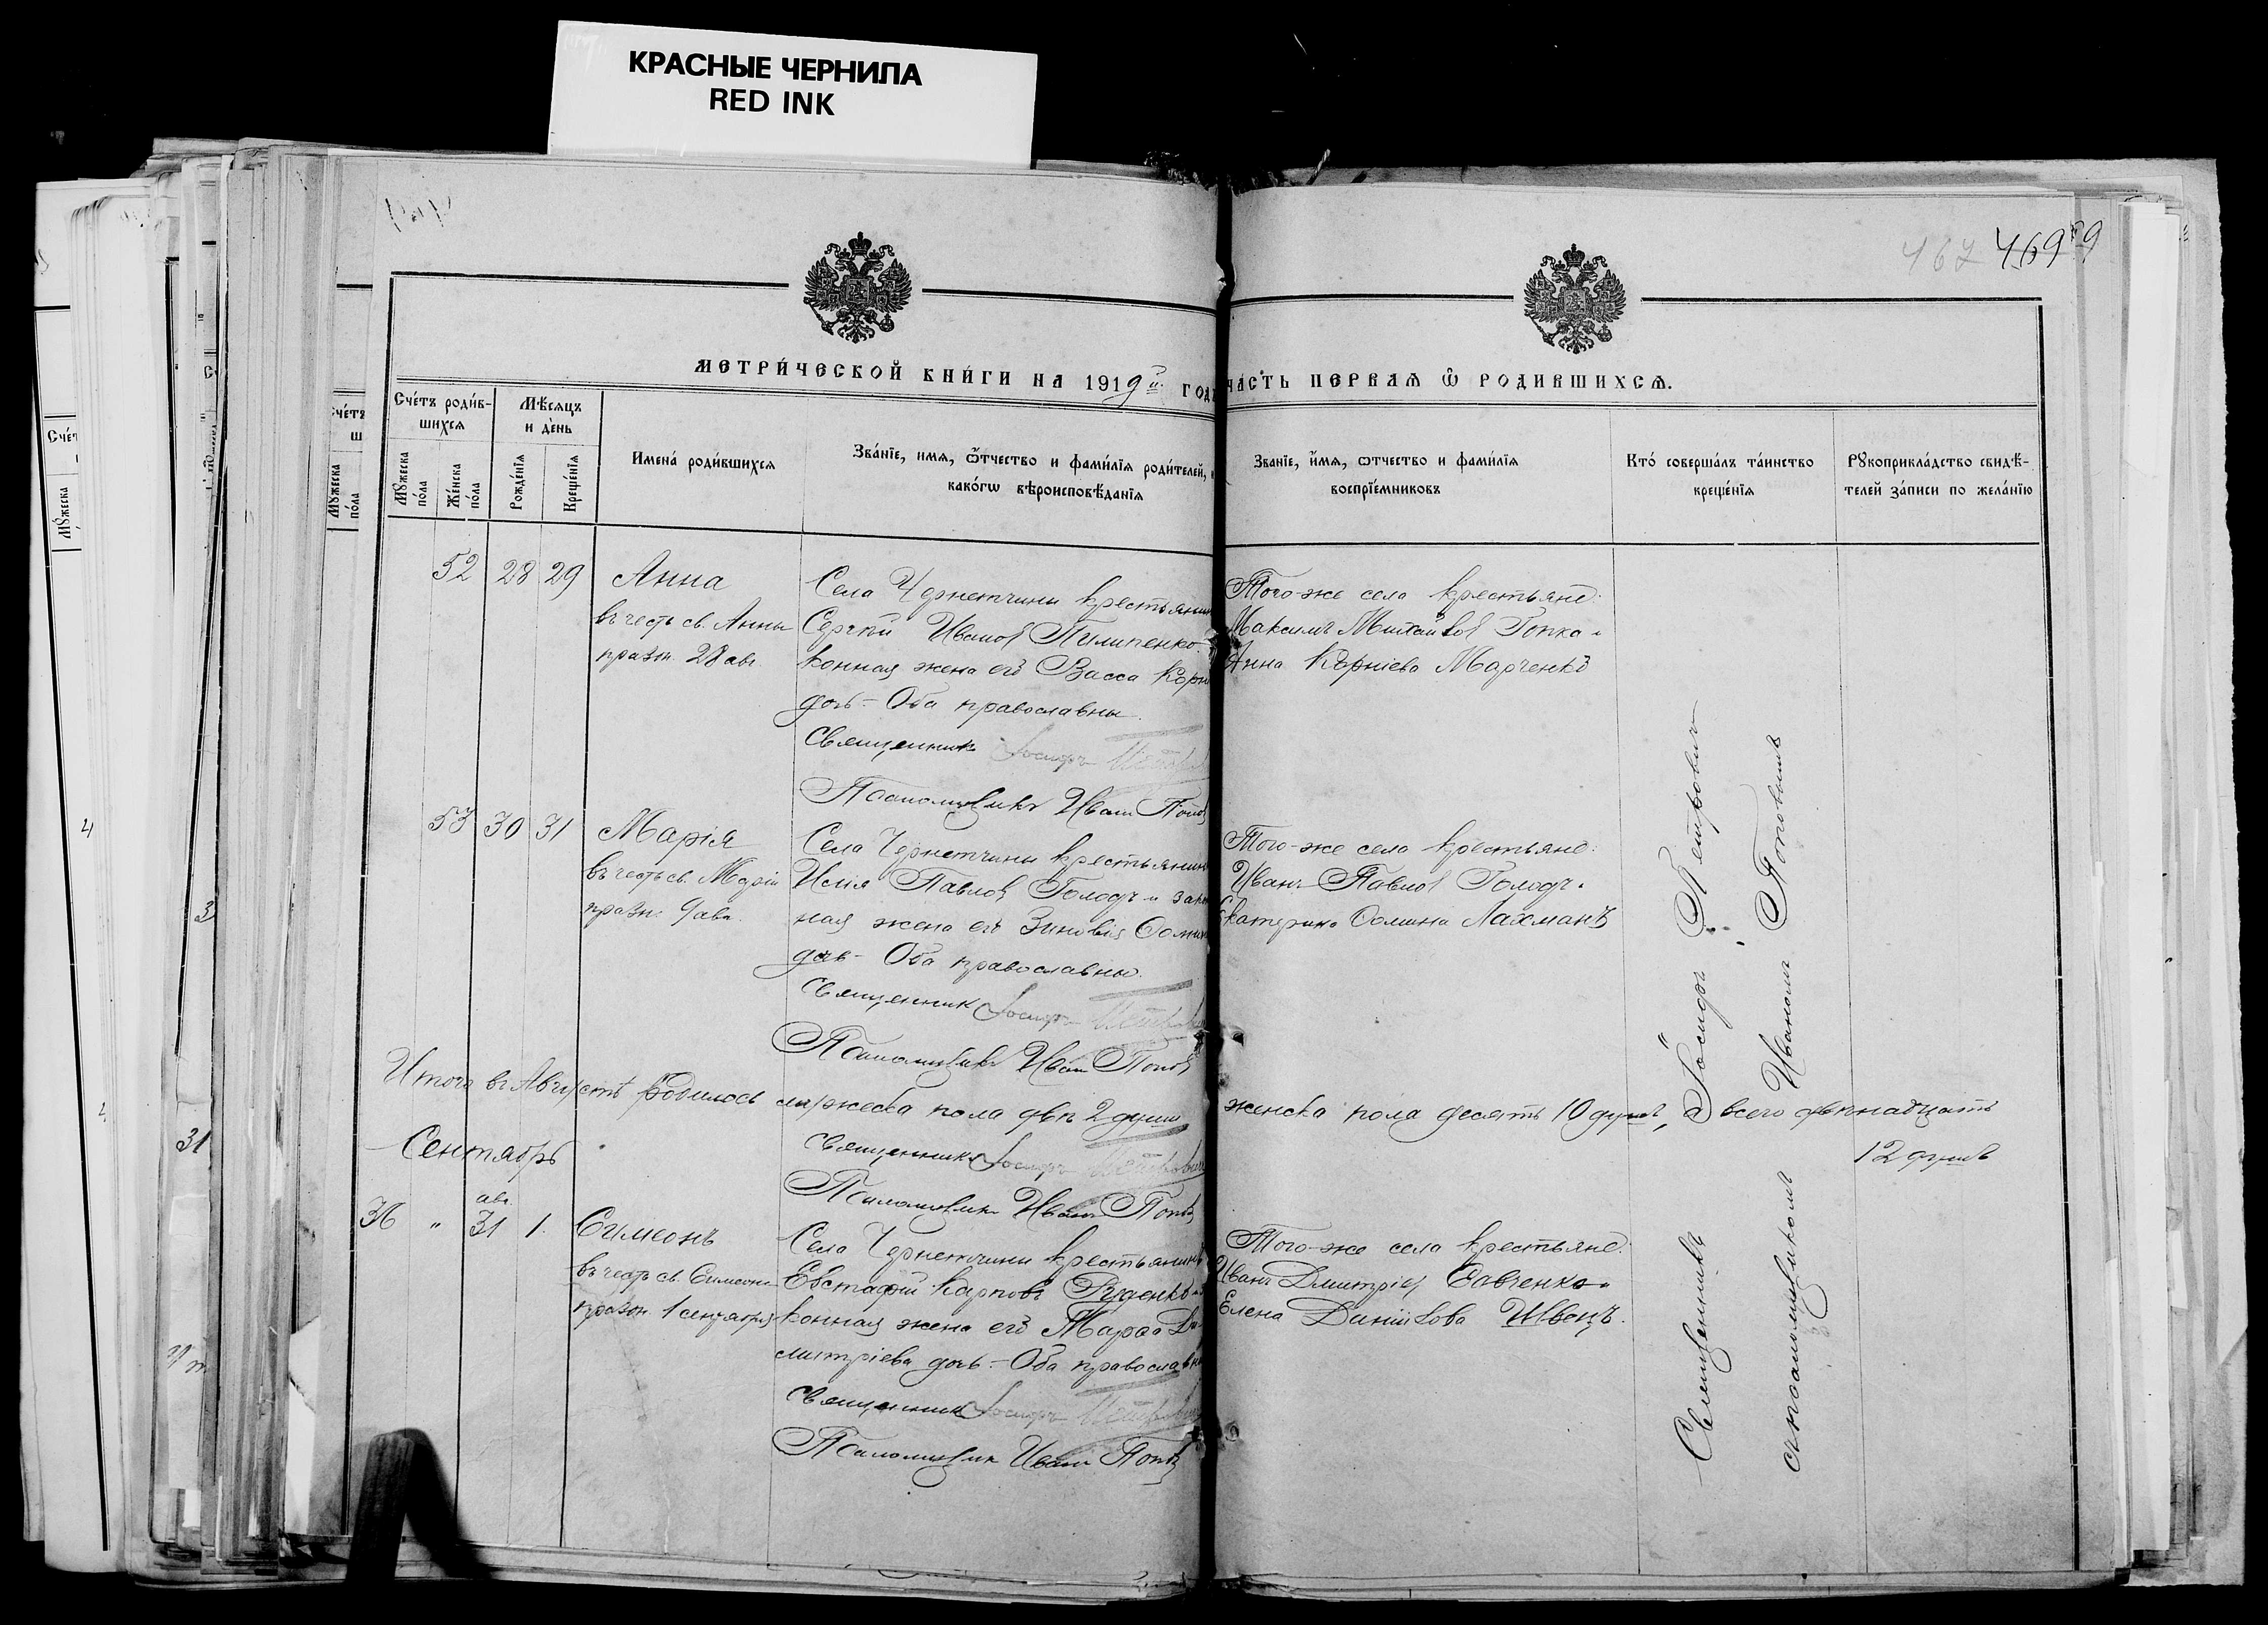 КРАСНЫЕ ЧЕРНИЛА
RED INK
467 469
МЕТРИ́ЧЕСКОЙ КНИ́ГИ НА 1919 й ГОДЪ
ЧАСТЬ ПЕРВАЯ Ѡ РОДИВШИХСѦ.
Сче́тъ роди́в-
шихся
Мꙋ́жеска по́ла
Же́нска по́ла
Мѣ́сяцъ
и де́нь
Рожде́нїя
Креще́нїя
Имена́ роди́вшихся
Зва́нїе, имя, ѿтчество и фами́лїя роди́телей, и
како́гѡ вѣроисповѣ́данїя
Зва́нїе, и́мя, ѿтчество и фами́лїя
воспрїе́мниковъ
Кто́ соверша́лъ та́инство
креще́нїя
Рꙋкоприкла́дство свидѣ́-
телей за́писи по жела́нїю
52 28 29 Анна
въ честь св. Анны
празн. 28 авг.
Села Чернетчины крестьянинъ
Сергѣй Ивановъ Пилипенко
конная жена его Васса Корн
дочь - Оба православны.
Священникъ Іосифъ Петров
Псаломщикъ Иванъ Попов
Того-же села крестьяне:
Максимъ Михайловъ Гопка и
Анна Корніева Марченко
53 30 31 Марія
въ честь св. Маріи
празн. 9 авг.
Села Чернетчины крестьянинъ
Исаія Павловъ Голодъ и закон
ная жена его Зиновія Ѳомин
дочь - Оба православны.
Священникъ Іосифъ Петрович
Псаломщикъ Иванъ Попов
Того-же села крестьяне:
Иванъ Павловъ Голодъ и
Екатерина Ѳомина Лахманъ
Итого въ Августѣ родилось мужеска пола двѣ 2 души
женска пола десять 10 душъ, а всего двѣнадцать
12 душъ
Священникъ Іосифъ Петрович
Псаломщикъ Иванъ Попов
Сентябрь
36 " авг. 31 1. Симеонъ
въ честь св. Симеона
празн. 1 сентября
Села Чернетчины крестьянинъ
Евстафій Карповъ Руденко
конная жена его Марфа Ди-
митріева дочь. - Оба православн
Священникъ Іосифъ Петрович
Псаломщикъ Иванъ Попов
Того-же села крестьяне:
Иванъ Димитріев
Елена Даніилова Швецъ.
Священникъ Іосифъ Петровичъ
съ псаломщикомъ Иваномъ Поповымъ